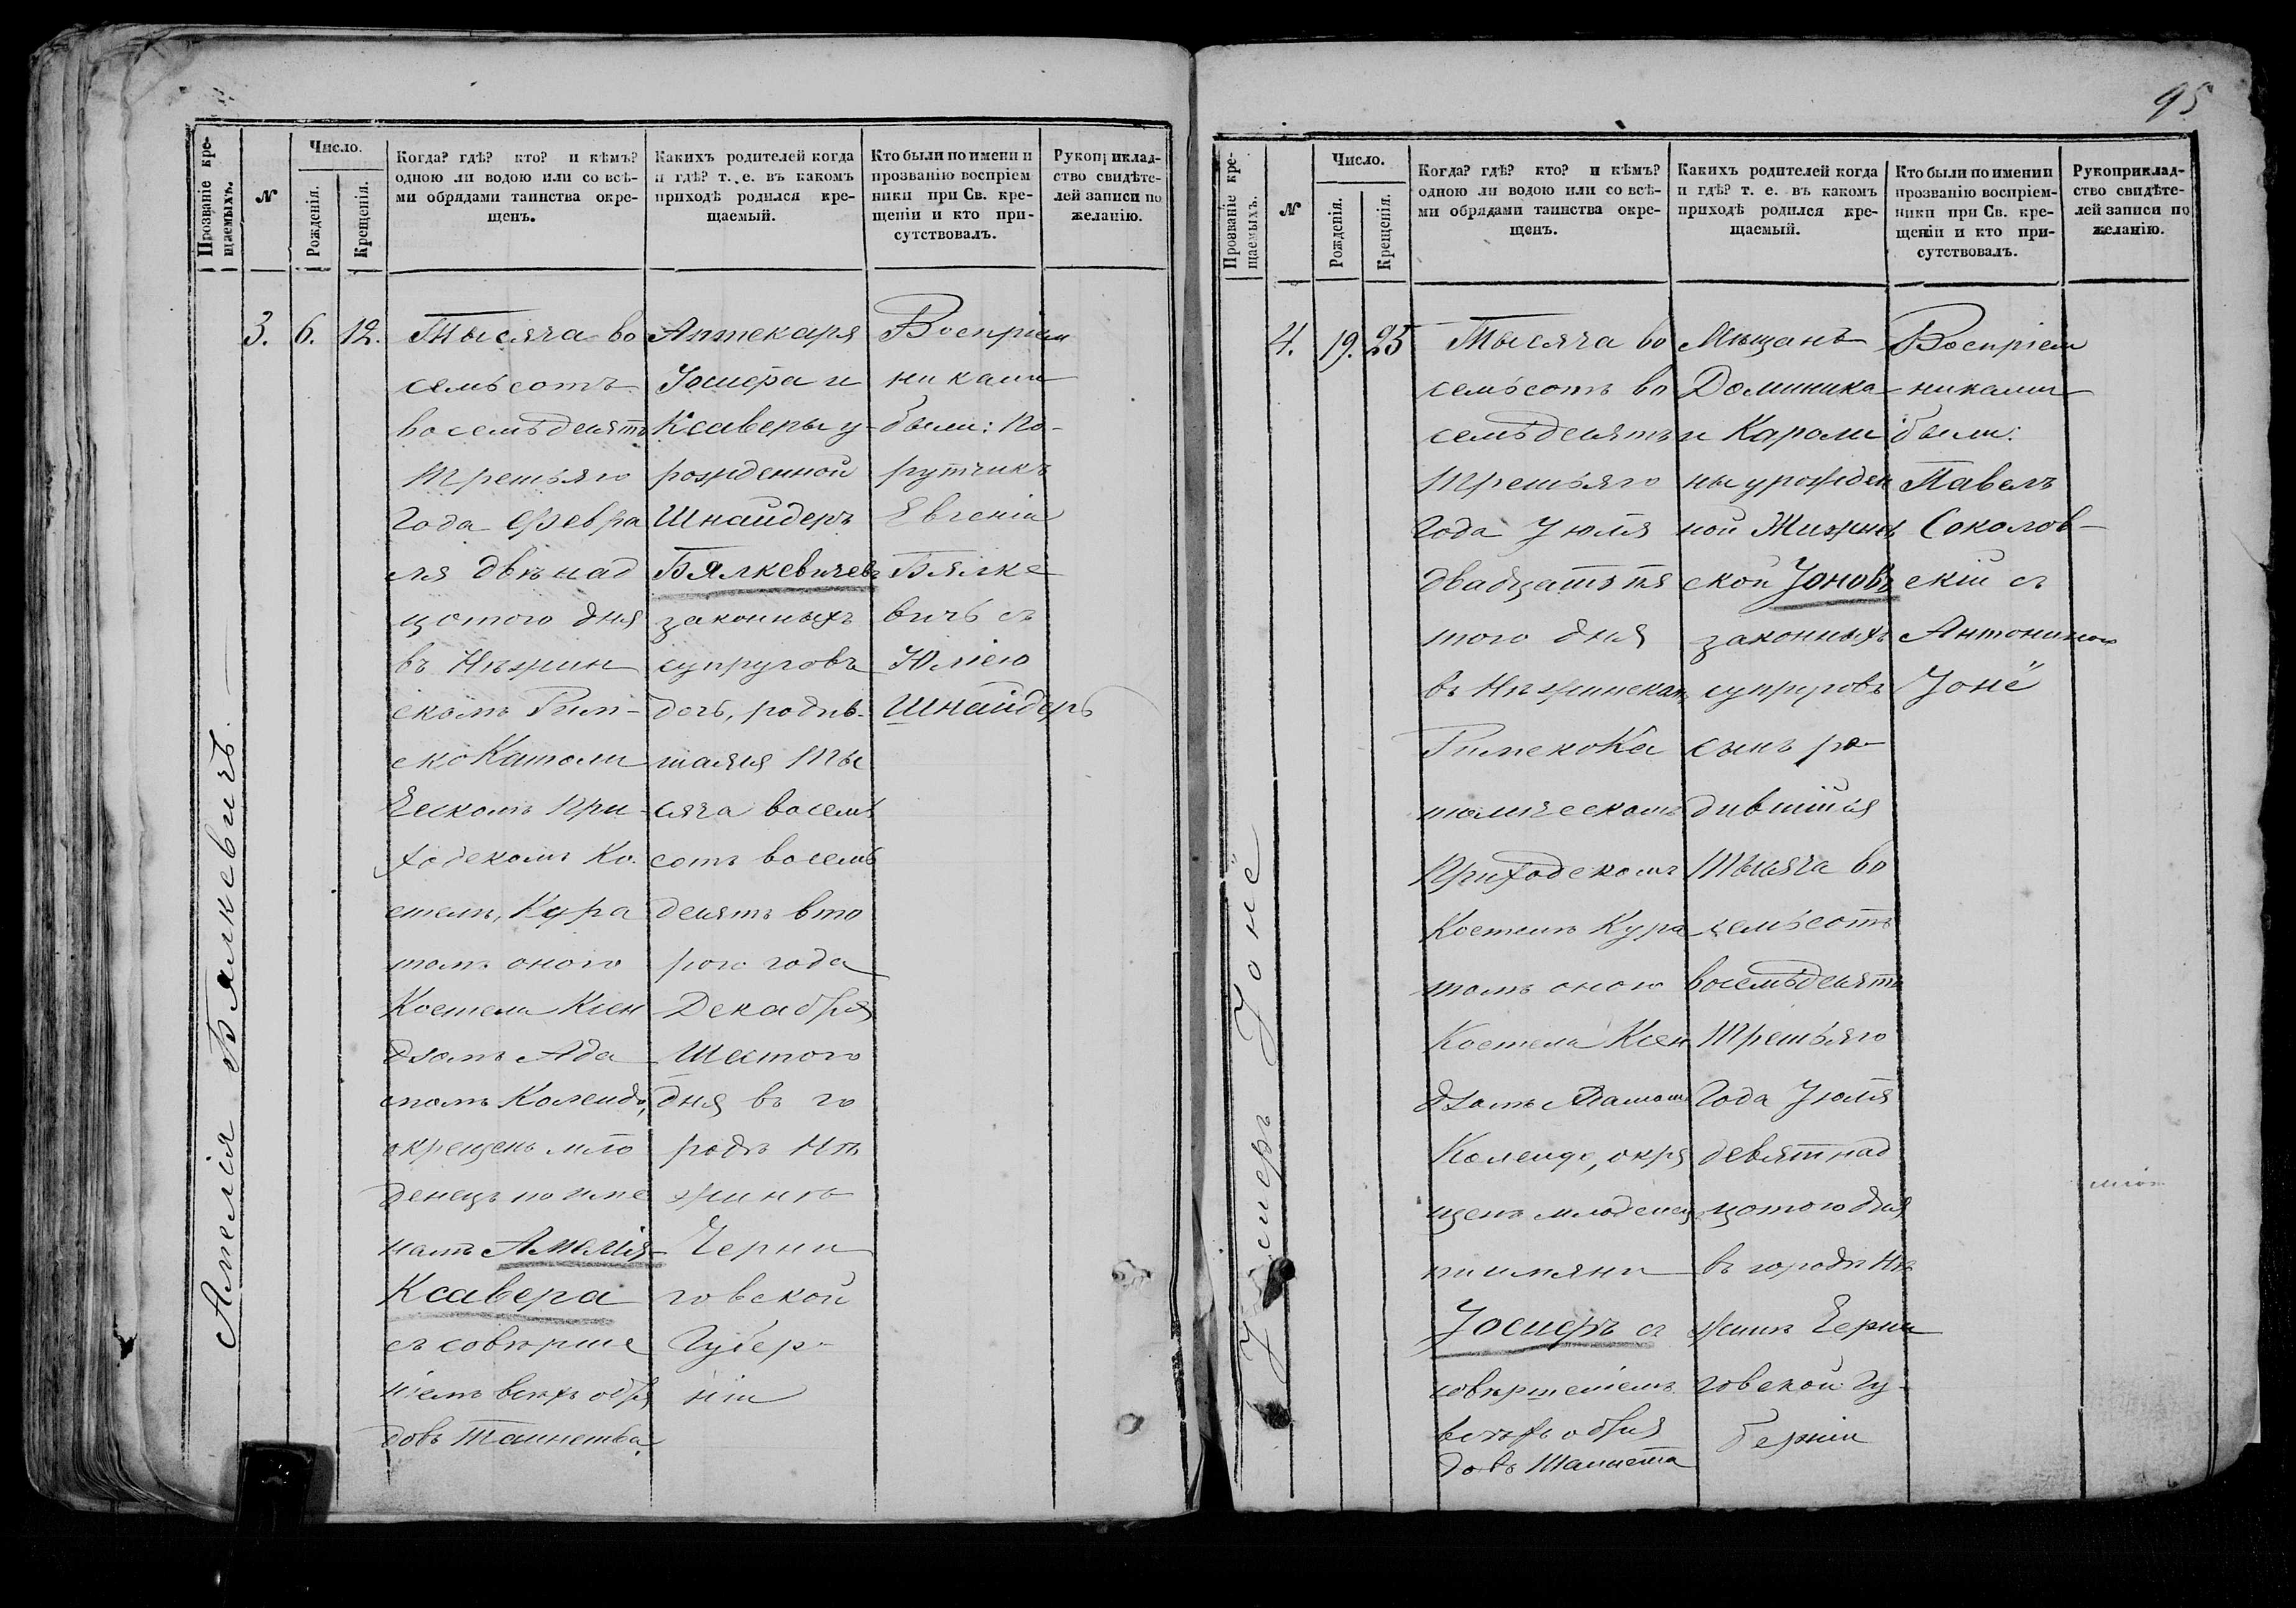 95
Прозваніе кре-
щаемыхъ.
№
Число.
Рожденія.
Крещенія.
Когда? гдѣ? кто? и кѣмъ?
одною ли водою или со всѣ-
ми обрядами таинства окре-
щенъ.
Какихъ родителей когда
и гдѣ? т. е. въ какомъ
приходѣ родился кре-
щаемый.
Кто были по имени и
прозванію воспріем
ники при Св. кре-
щеніи и кто при-
сутствовалъ.
Рукоприклад-
ство свидѣте-
лей записи по
желанію.
Амелія Бялкевичъ.
3.
6.
12.
Тысяча во
семьсотъ
восемьдесятъ
третьяго
года Февра
ля двѣнад
цотого дня
въ Нѣжин
скомъ Рим-
ско Католи
ческомъ При-
ходскомъ Ко-
стелѣ, Кура
томъ оного
Костела Ксен
дзомъ Ада
момъ Календо,
окрещенъ мло
денецъ по име
намъ Амелія
Ксавера
съ соверше
ніемъ всѣхъ обря
довъ Таинства.
Аптекаря
Іосифа и
Ксаверы у-
рожденной
Шнайдеръ
Бялкевичевъ
законныхъ
супруговъ
дочь, родив-
шаяся ты
сяча восемь
сотъ восемь
десятъ вто
рого года
Декабря
Шестого
дня въ го
родѣ Нѣ
жинѣ
Черни
говской
Губер-
ніи
Воспріем
никами
были: По-
рутчикъ
Евгеній
Бялке
вичъ съ
Юліею
Шнайдеръ
Прозваніе кре-
щаемыхъ.
№
Число.
Рожденія.
Крещенія.
Когда? гдѣ? кто? и кѣмъ?
одною ли водою или со всѣ-
ми обрядами таинства окре-
щенъ.
Какихъ родителей когда
и гдѣ? т. е. въ какомъ
приходѣ родился кре-
щаемый.
Кто были по имени и
прозванію воспріем-
ники при Св. кре-
щеніи и кто при-
сутствовалъ.
Рукоприклад-
ство свидѣте-
лей записи по
желанію.
Іосифъ Іонё
4.
19.
25
Тысяча во
семьсотъ во
семьдесятъ
третьяго
года Іюля
двадцать пя
того дня
въ Нѣжинскомъ
Римско Ка
толическомъ
Приходскомъ
Костелѣ Кура
томъ оного
Костела Ксен
дзомъ Адамомъ
Календо, окре
щенъ младенецъ
по имяни
Іосифъ съ
совершеніемъ
всѣхъ обря
довъ Таинства
Мѣщанъ
Доминика
и Кароли
ны урожден
ной Жижнев
ской Іоновъ
законныхъ
супруговъ
сынъ ро-
дившійся
тысяча во
семьсотъ
восемьдесятъ
третьяго
года Іюля
девятнад
цотого дня
въ городѣ Нѣ
жинѣ Черни
говской Гу-
берніи
Воспріем
никами
были:
Павелъ
Соколов-
скій съ
Антониною
Іонё